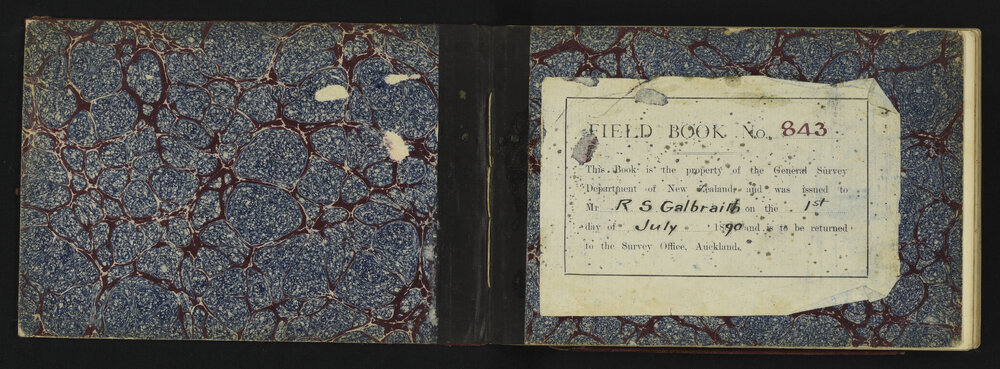 FIELD BOOK No. 843
This Book is the property of the General Survey
Department of New Zealand, and was issued to
Mr R S Galbraith on the 1st
day of July 1890 and is to be returned
to the Survey Office, Auckland.